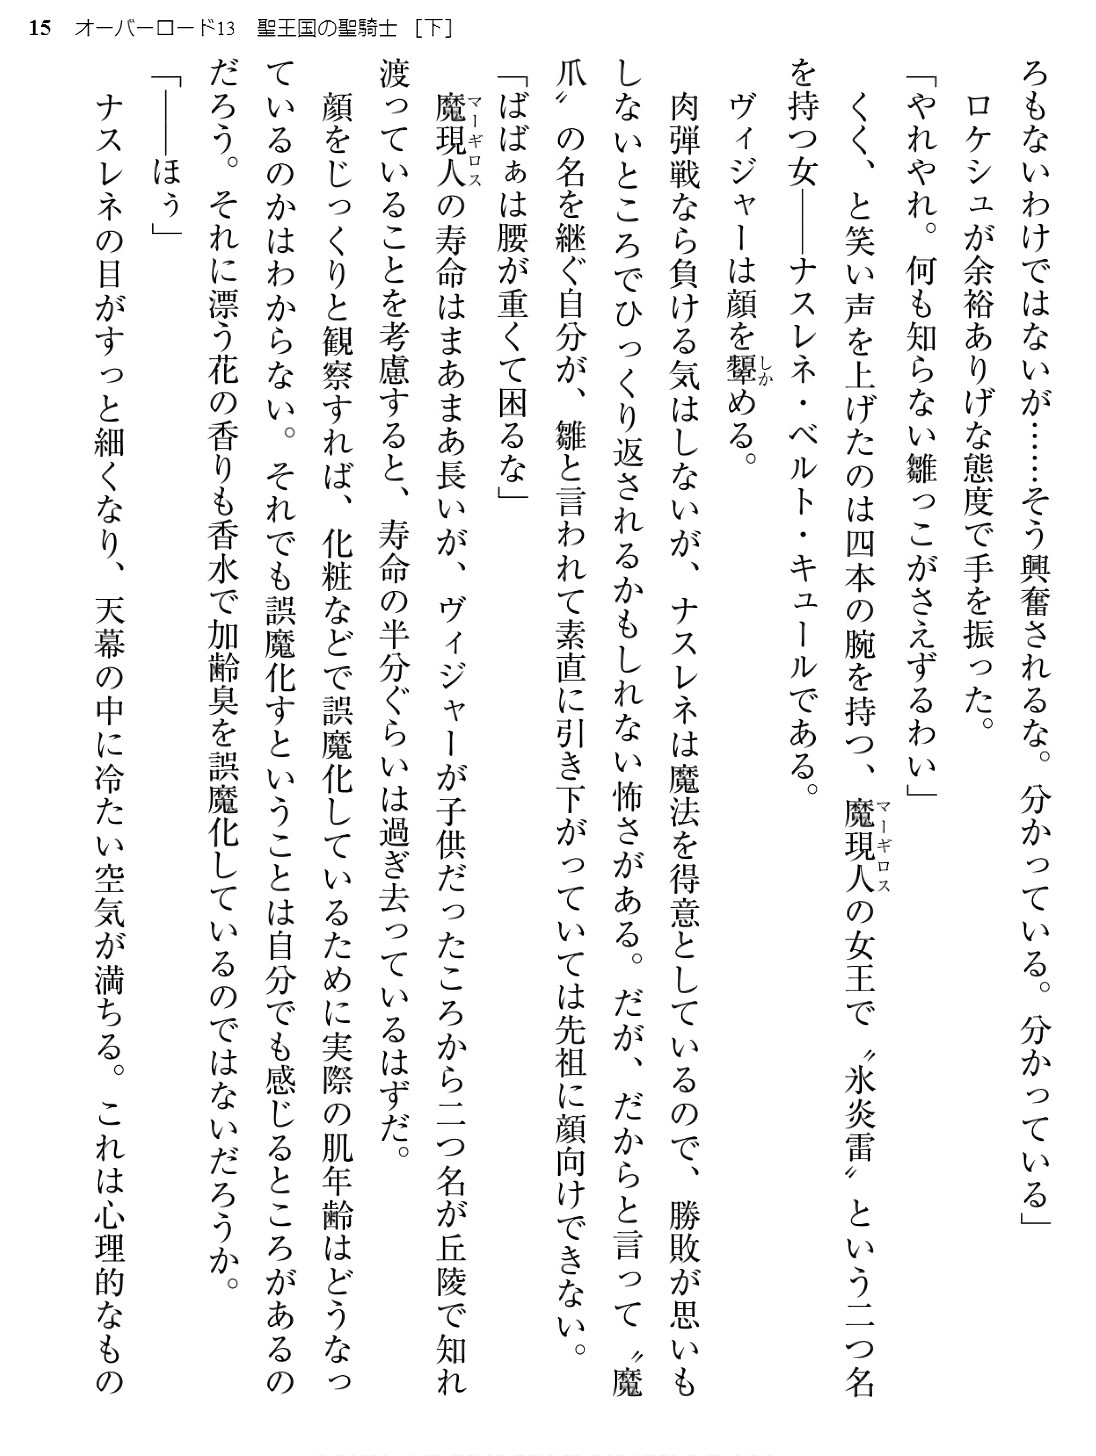 15 オーバーロード13 聖王国の聖騎士 ［下］
ろもないわけではないが……そう興奮されるな。分かっている。分かっている」
ロケシュが余裕ありげな態度で手を振った。
「やれやれ。何も知らない雛っこがさえずるわい」
くく、と笑い声を上げたのは四本の腕を持つ、魔現人の女王で〝氷炎雷〟という二つ名
マーギロス
を持つ女――ナスレネ・ベルト・キュールである。
ヴィジャーは顔を顰める。
しか
肉弾戦なら負ける気はしないが、ナスレネは魔法を得意としているので、勝敗が思いも
しないところでひっくり返されるかもしれない怖さがある。だが、だからと言って〝魔
爪〟の名を継ぐ自分が、雛と言われて素直に引き下がっていては先祖に顔向けできない。
「ばばぁは腰が重くて困るな」
魔現人の寿命はまあまあ長いが、ヴィジャーが子供だったころから二つ名が丘陵で知れ
マーギロス
渡っていることを考慮すると、寿命の半分ぐらいは過ぎ去っているはずだ。
顔をじっくりと観察すれば、化粧などで誤魔化しているために実際の肌年齢はどうなっ
ているのかはわからない。それでも誤魔化すということは自分でも感じるところがあるの
だろう。それに漂う花の香りも香水で加齢臭を誤魔化しているのではないだろうか。
「――ほぅ」
ナスレネの目がすっと細くなり、天幕の中に冷たい空気が満ちる。これは心理的なもの